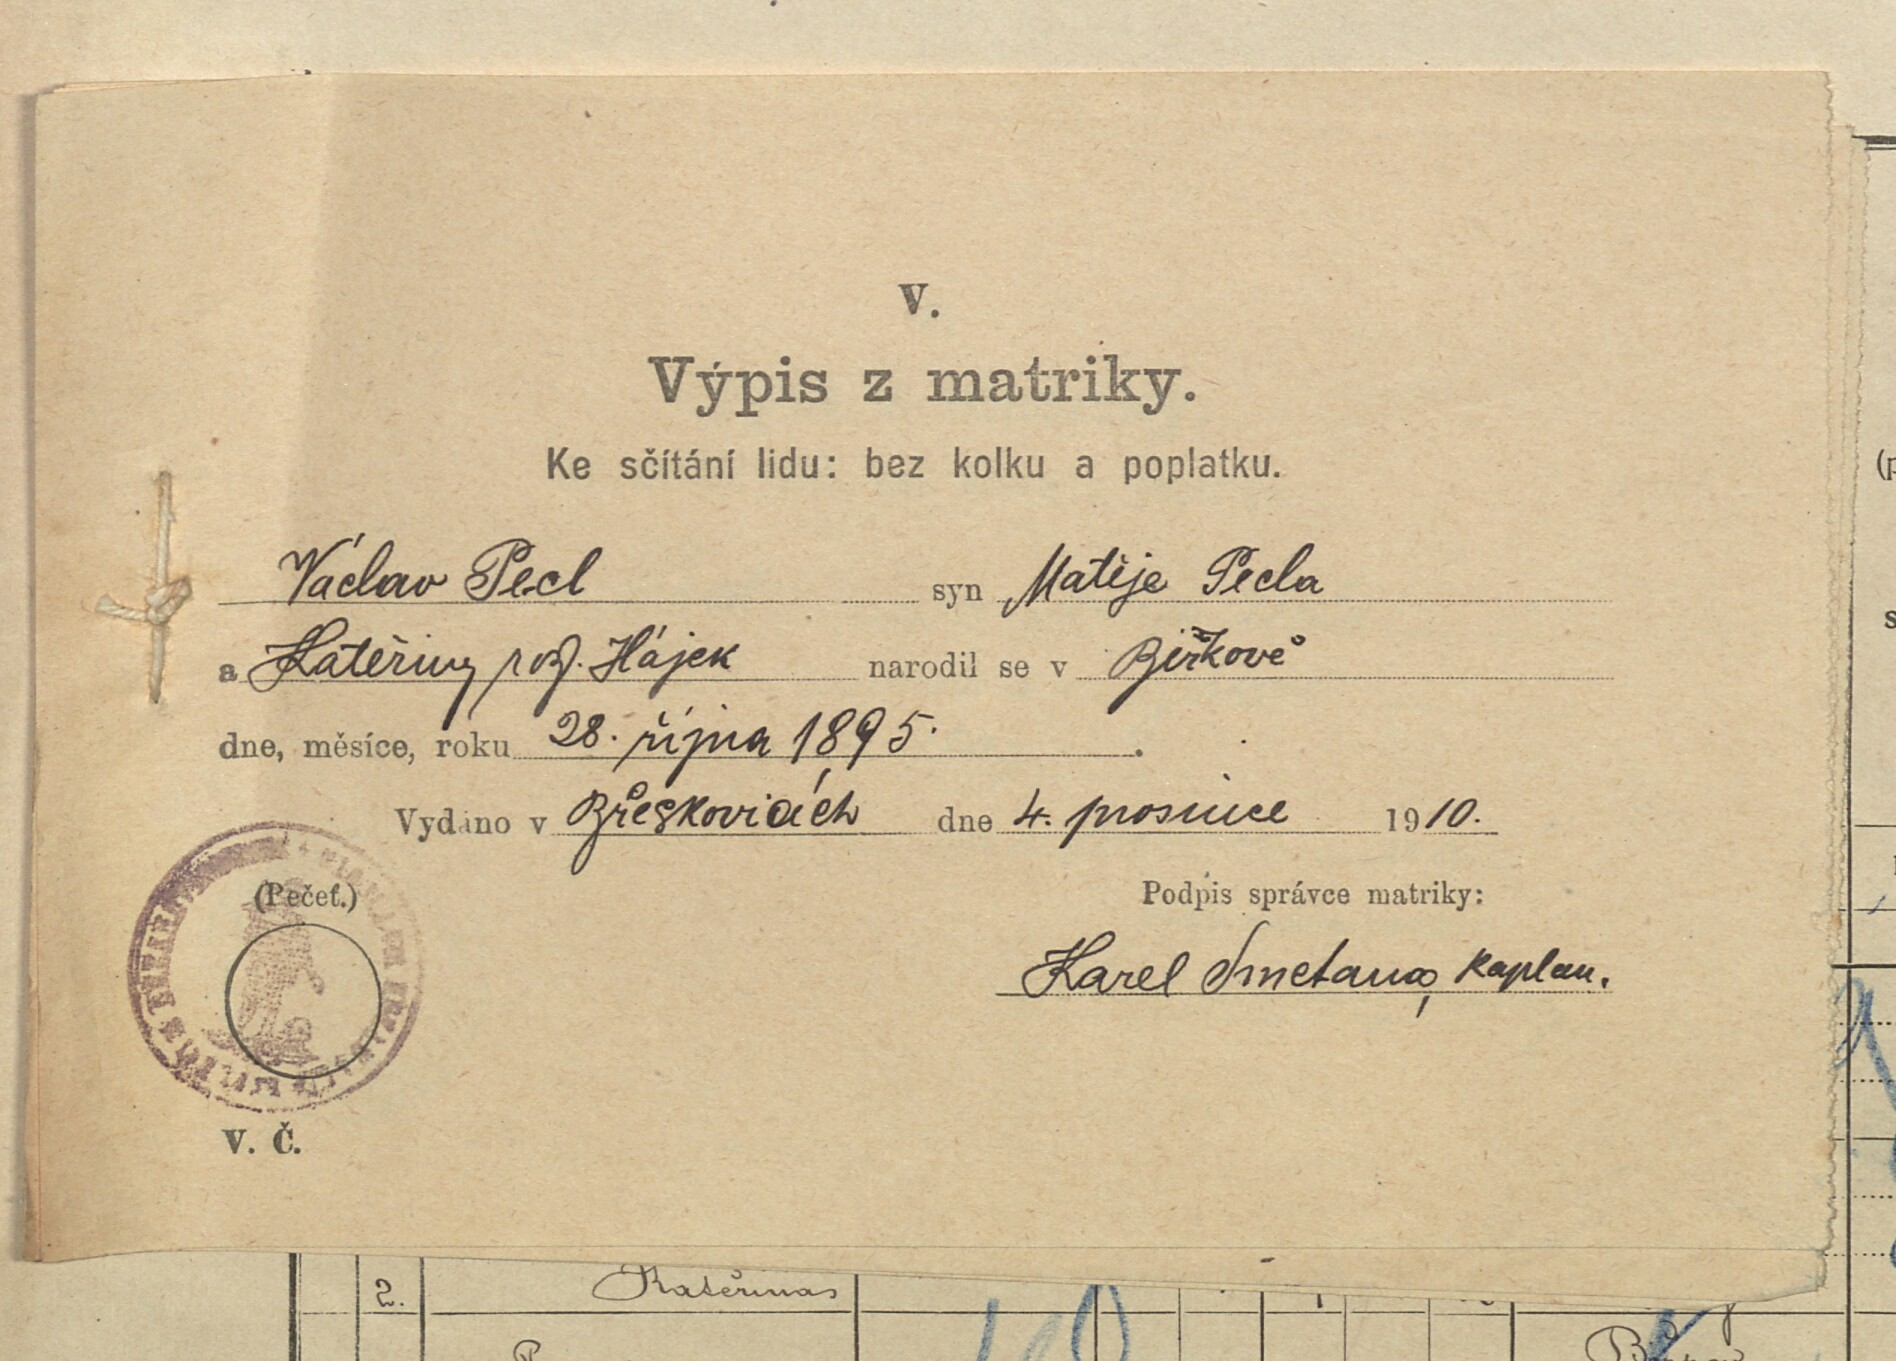 V.
Výpis z matriky.
Ke sčítání lidu: bez kolku a poplatku.
Václav Pecl syn Matěje Pecla
a Kateřiny roz. Hájek narodil se v Biřkově
dne, měsíce, roku 28. října 1895.
Vydáno v Břeskovicích dne 4. prosince 1910.
(Pečeť.) Podpis správce matriky:
Karel Smetana, kaplan.
V. Č.
2. Kateřina